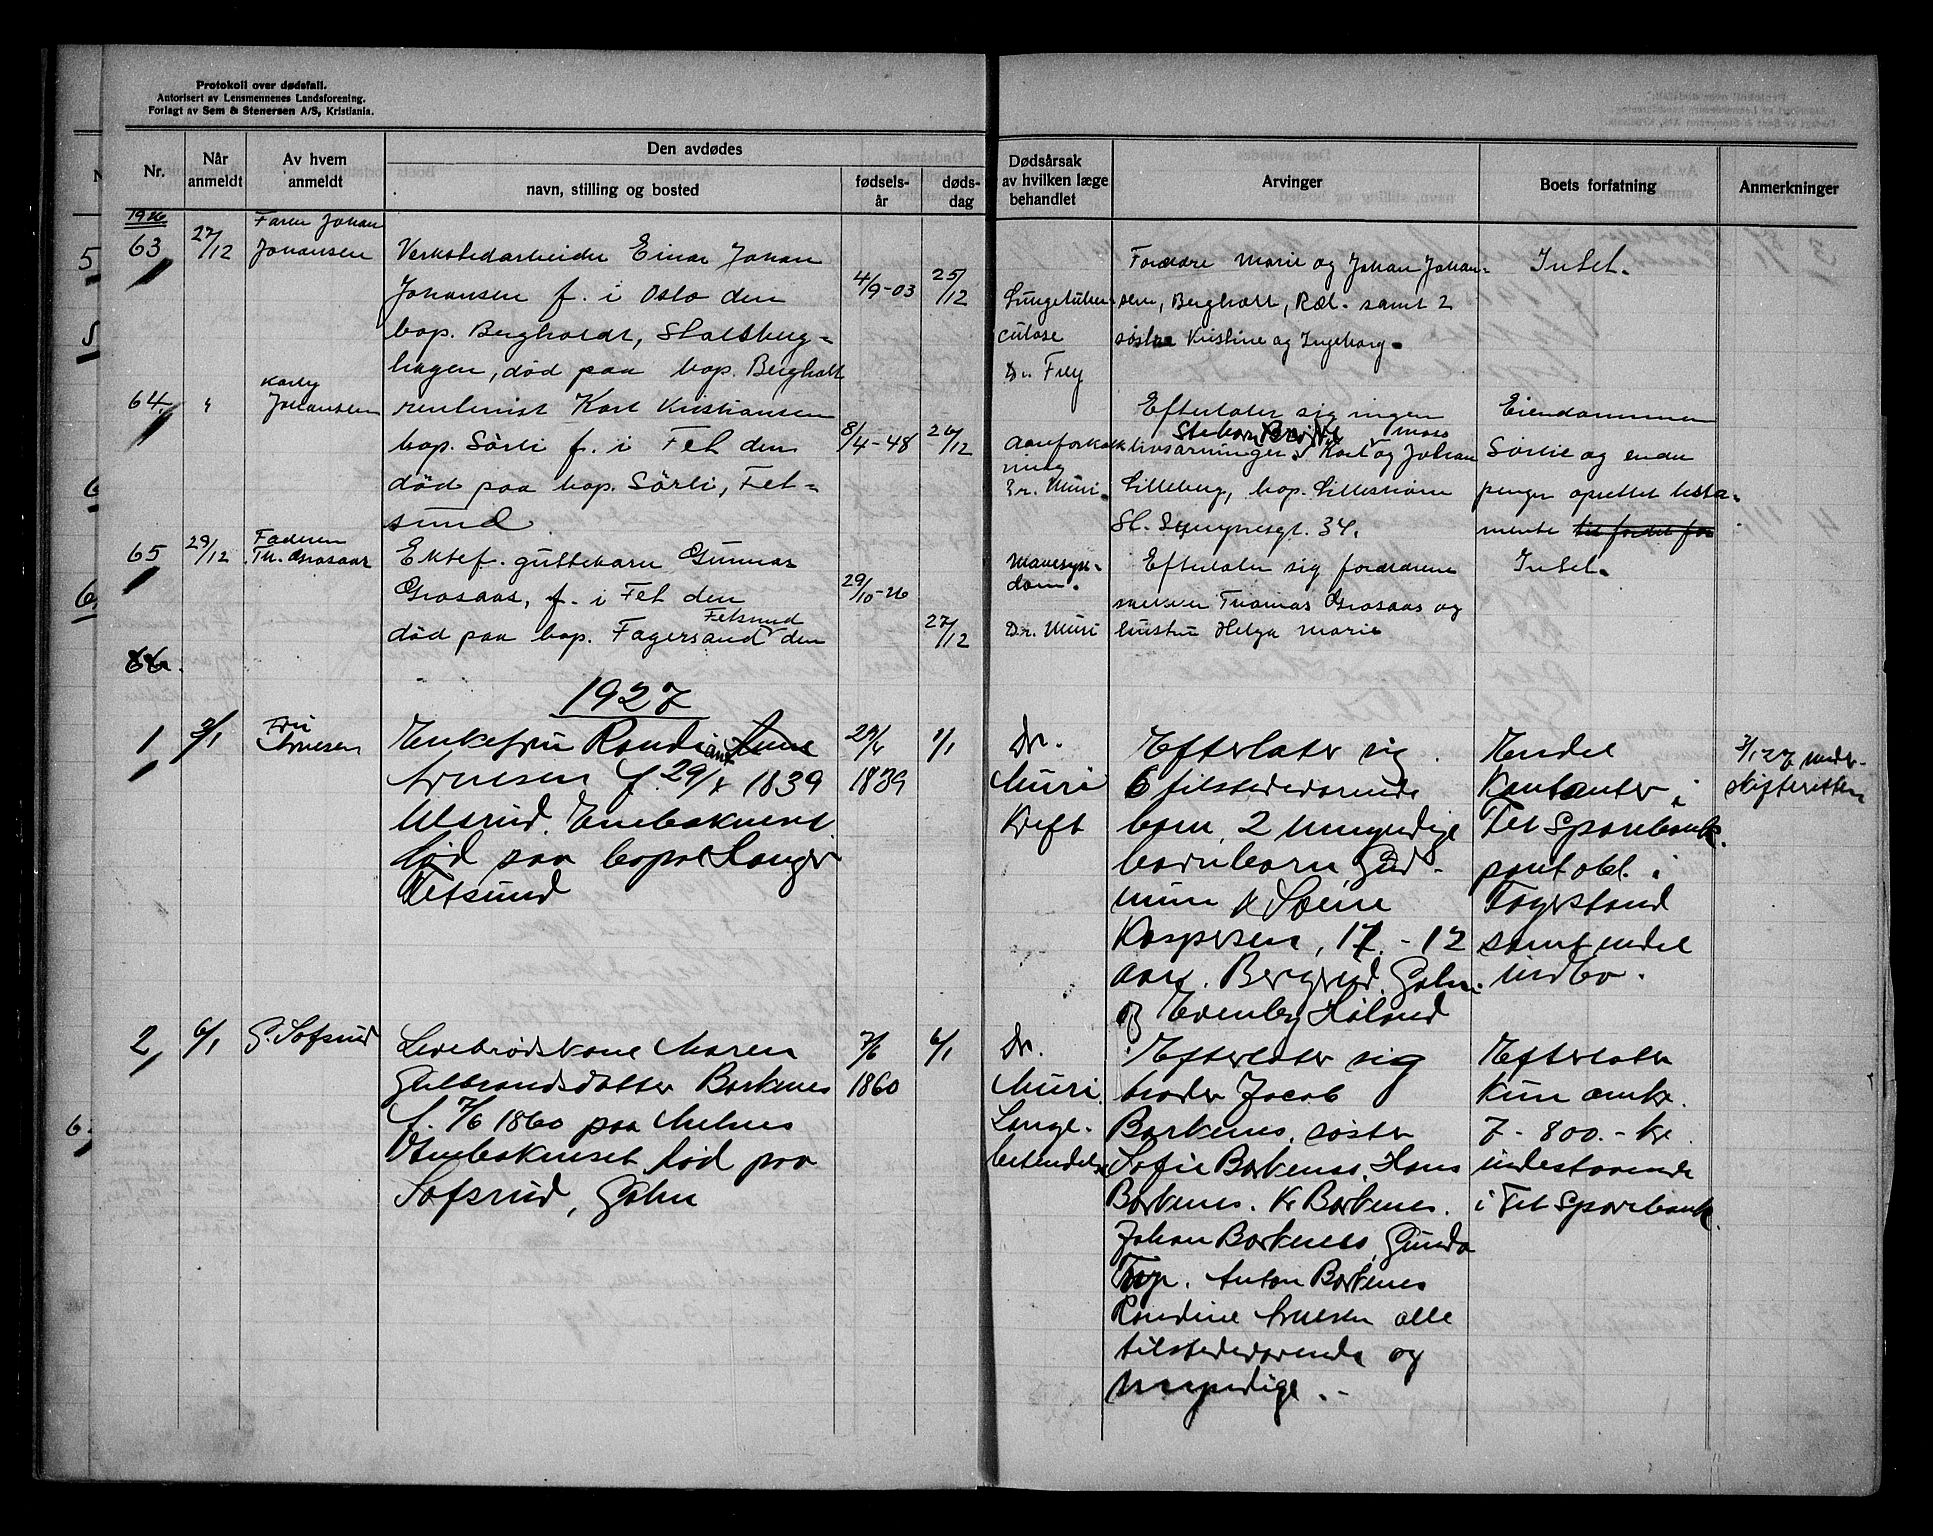 Protokoll over dødsfall.
Autorisert av Lensmennenes Landsforening.
Forlagt av Sem & Stenersen A/S, Kristiania.
Nr.
Når anmeldt
Av hvem anmeldt
Den avdødes
navn, stilling og bosted
fødsels-år
døds-dag
Dødsårsak av hvilken læge behandlet
Arvinger
Boets forfatning
Anmerkninger
1926
63
27/12
Faren Johan
Johansen
Verkstedarbeider Einar Johan
Johansen f. i Oslo den
bop. Bergholdt, Stalsberg-
hagen, død paa bop. Bergholt
4/9-03
25/12
Lungetuber-
culose
Dr. Frey
Foreldre Marie og Johan Johan-
sen, Bergholt, Ræl. samt 2
søstre Kristine og Ingeborg.
Intet.
64
"
Karly
Johansen
rentenist Karl Kristiansen
bop. Sörli f. i Fet den
død paa bop. Sörli, Fet-
sund
8/4-48
26/12
Aareforkalk
ning
Dr. Muri.
Efterlater sig ingen
livsarvinger. Karl og Johan
Lilleberg, bop. Lillestrøm
34.
Eiendommen
Sörlie og endel
penger oprettet testa-
mente til fordel for
65
29/12
Faderen
Th. Grosaas
Ektef. guttebarn Gunnar
Grosaas, f. i Fet den
Fetsund
død paa bop. Fagersand den
29/10-26
27/12
Mavesyk-
dom.
Dr. Muri
Efterlater sig foreldrene
Thomas Grosaas og
hustru Helga Marie
Intet.
66.
1927
1
3/1
Fru
Arnesen
Enkefru Randi
Arnesen f. 29/4 1839
Ulsrud. Enebakneset
død paa bopæl Langer
Fetsund
29/4
1839
1/1
Dr.
Muri
Kreft
Efterlater sig
6 tilstedeværende
barn, 2 umyndige
barnebarn, Gud-
mun &
Kaspersen, 17 - 12
aar. Bergerud. Galn.
og Evenby Høland
Endel
Kontanter i
Fet Sparebank.
pantobl. i
Fagerstand
samt endel
indbo.
3/1 27 meder-
skifteretten
2
6/1
G. Tofsrud
Levebrødskone Maren
Gulbrandsdatter Barkenes
f. 7/6 1860 paa Melnes
Enebakneset død paa
Tofsrud, Galn
7/6
1860
6/1
Dr.
Muri.
Lunge-
betendelse
Efterlater sig
broder Jacob
Barkenes, søster
Sofie Barkenes, Hans
Barkenes. Kr Barkenes.
Johan Barkenes, Gunda
Anton Barkenes
Randine Arnesen alle
tilstedeværende og
myndige.-
Efterlater
kun omkr.
7-800.- kr.
indestaaende
i Fet Sparebank.